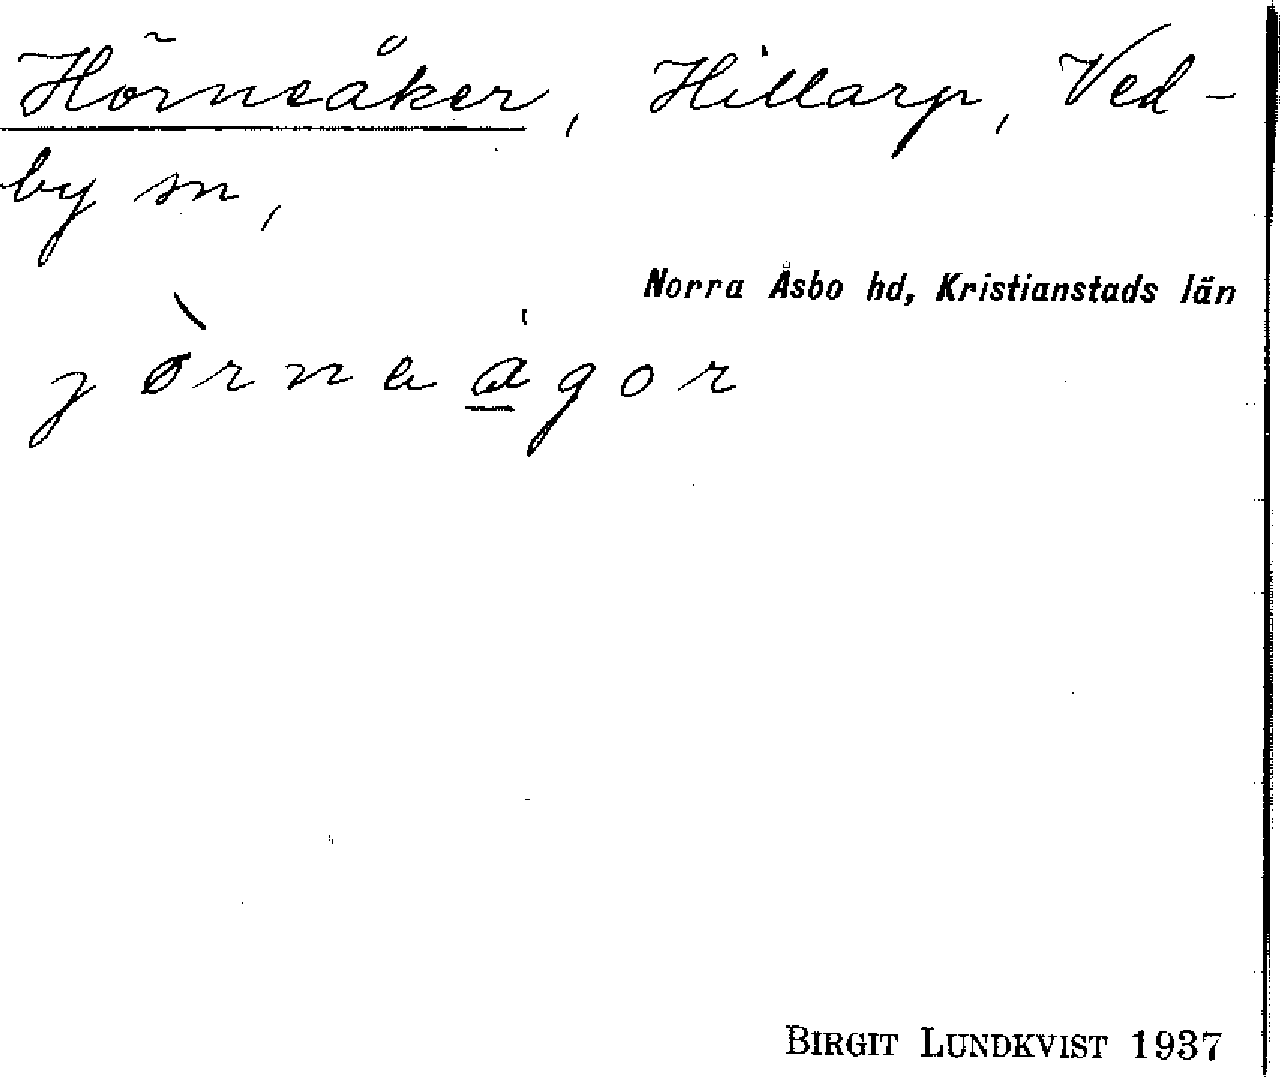 Hörneåker, Hillarp, Ved-
by sn,
Norra Åsbo hd, Kristianstads län
BIRGIT LUNDKVIST 1937